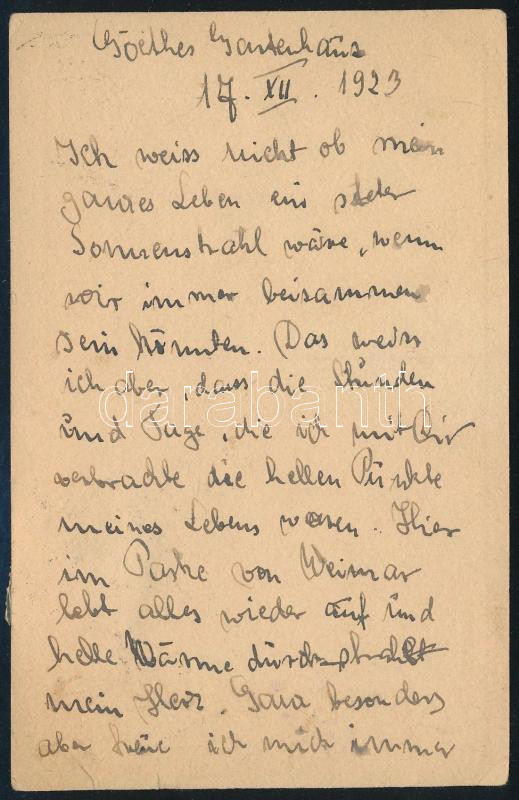 Goethes Gartenhaus
17. XII. 1923
Ich weiss nicht ob mein
ganzes Leben ein steter
Sonnenstrahl wäre, wenn
wir immer beisammen
sein könnten. Das weiss
ich aber, dass die Stunden
und Tage, die ich mit Dir
verbrachte die hellen Punkte
meines Lebens waren. Hier
im Parke von Weimar
lebt alles wieder auf und
helle Wärme durchstrahlt
mein Herz. Ganz besonders
aber freue ich mich immer
darabanth